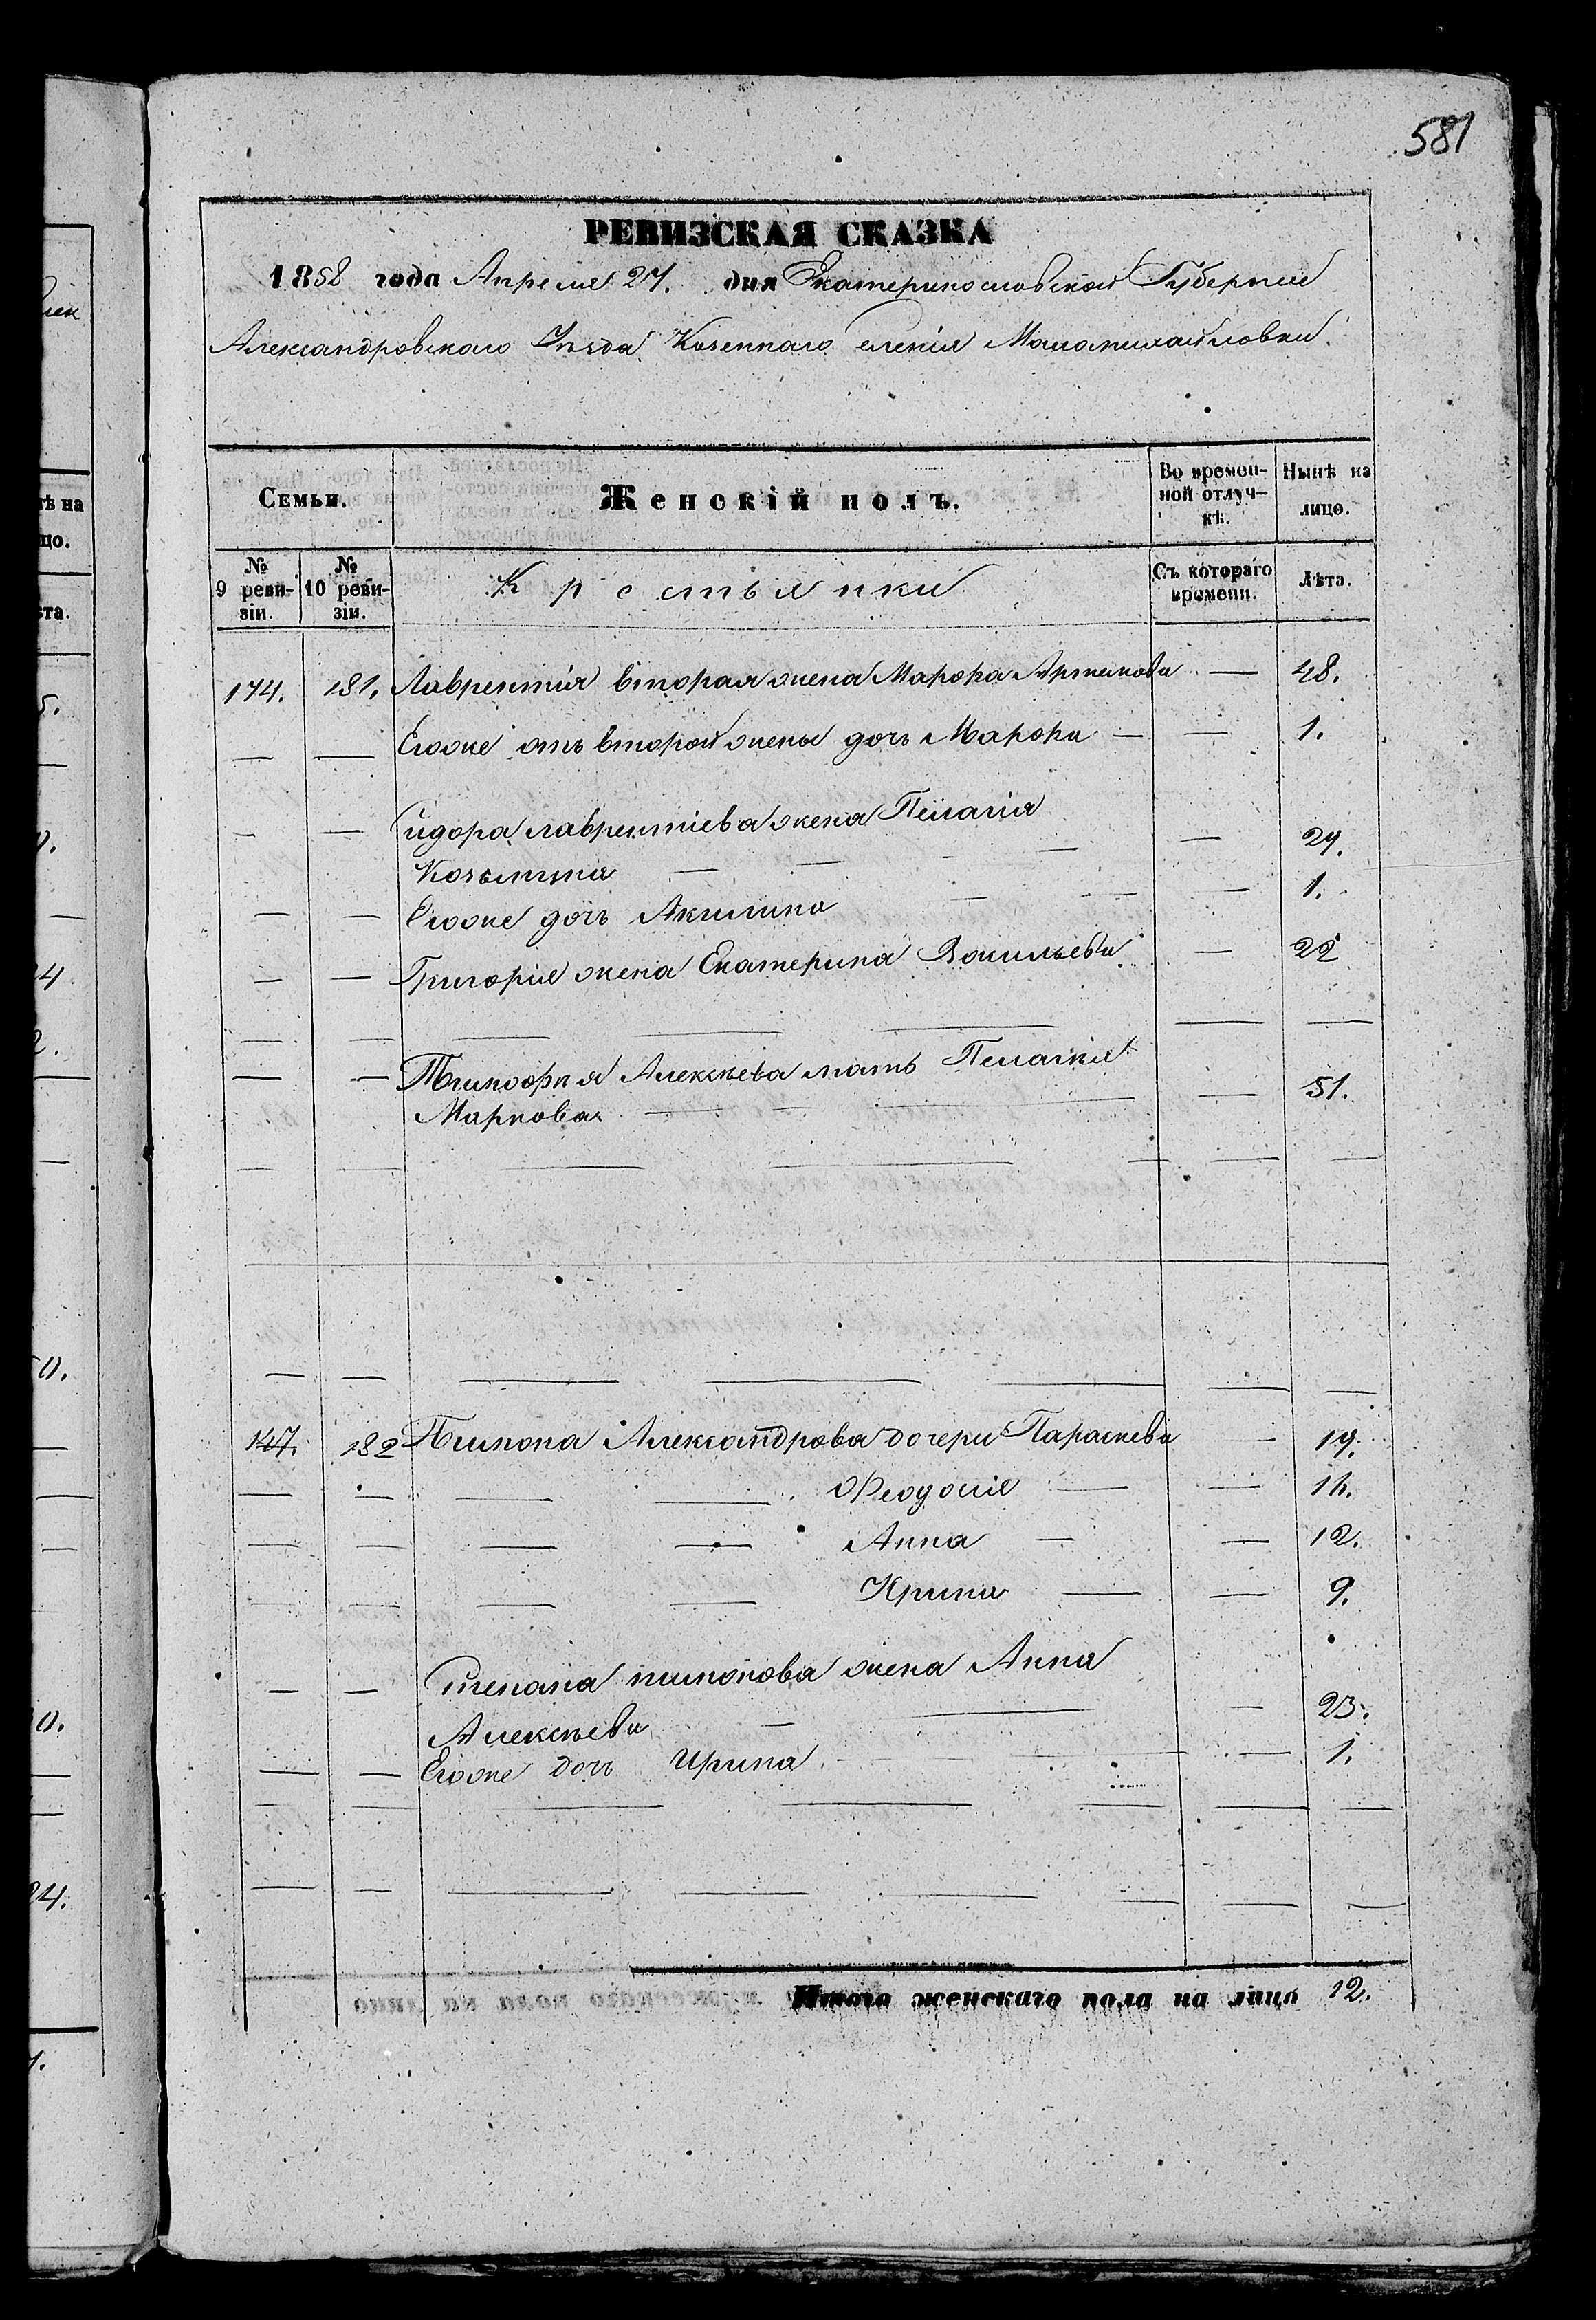 581
РЕВИЗСКАЯ СКАЗКА
1858 года Апреля 27. дня Екатеринославской Губернии
Александровскаго Уезда Казеннаго селенія Маломихайловки.
Семьи. Женскій полъ. Во времен- Нынѣ на
ной отлуч- лицо.
кѣ.
№ № Крестьянки Съ котораго Лѣта.
9 реви- 10 реви- времени.
зіи. зіи.
174. 181. Лаврентія вторая жена Марфа Артемова — 48.
— — Егоже отъ второй жены дочь Марфа — — 1.
— — Сидора лаврентіева жена Пелагія
Козьмина — — — — — 29.
— — Егоже дочь Акилина — — — 1.
— — Григорія жена Екатерина Васильева — 22
— — Тимофея Алексѣева мать Пелагія
Маркова — — — — 51.
147. 182 Пимона Александрова дочери Параскева — 19.
— — — — Феодосія — — 16.
— — — — Анна — — 12.
— — — — Ирина — — 9.
— — Степана пимонова жена Анна
Алексѣева — — — 23.
— — Егоже дочь Ирина — — 1.
Итого женскаго пола на лицо 12.